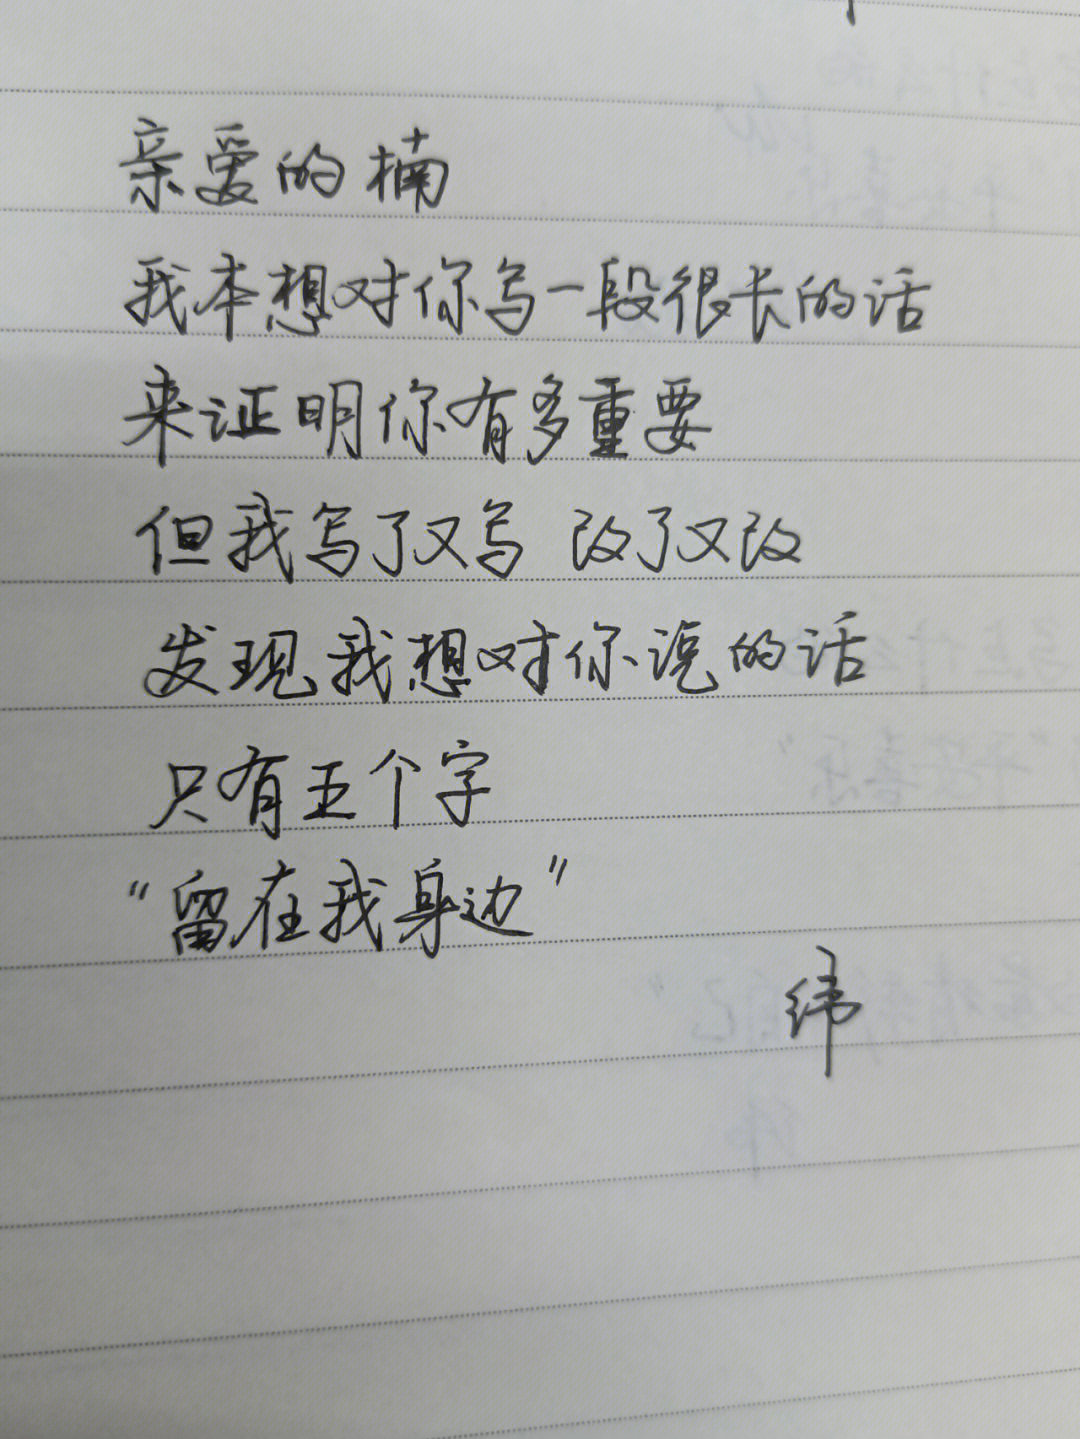 亲爱的楠
我本想对你写一段很长的话
来证明你有多重要
但我写了又写 改了又改
发现我想对你说的话
只有五个字
“留在我身边”
纬